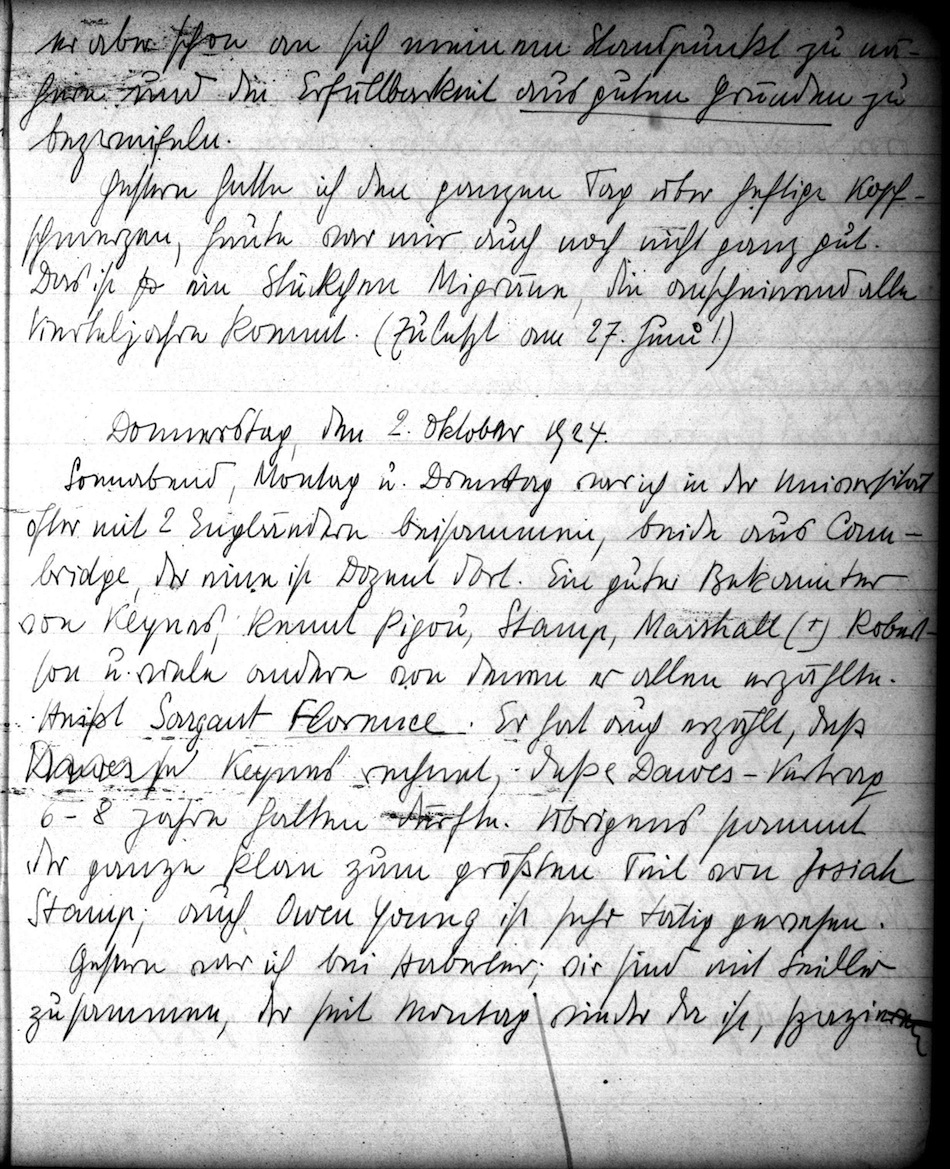 er aber schon an sich meinem Standpunkt zu nä-
hern und die Erfüllbarkeit aus guten Gründen zu
bezweifeln.
Gestern hatte ich den ganzen Tag über heftige Kopf-
schmerzen, heute war mir auch noch nicht ganz gut.
Das ist ein Stückchen Migräne, die anscheinend alle
Vierteljahre kommt. (Zuletzt am 27. Juni!)
Donnerstag, den 2. Oktober 1924.
Sonnabend, Montag u. Dienstag war ich in der Universität
öfter mit 2 Engländern beisammen, beide aus Cam-
bridge, der eine ist Dozent dort. Ein guter Bekannter
von Keynes, kennt Pigou, Stamp, Marshall (†) Robert-
son u. viele andere von denen er allen erzählte.
Heißt Sargant Florence. Er hat auch erzählt, daß
Keynes rechnet, daß Dawes-Vertrag
6-8 Jahre halten dürfte. Übrigens stammt
der ganze Plan zum größten Teil von Josiah
Stamp; auch Owen Young ist sehr tätig gewesen.
Gestern war ich bei Haberler; wir sind mit Seidler
zusammen, der seit Montag wieder da ist, spazieren